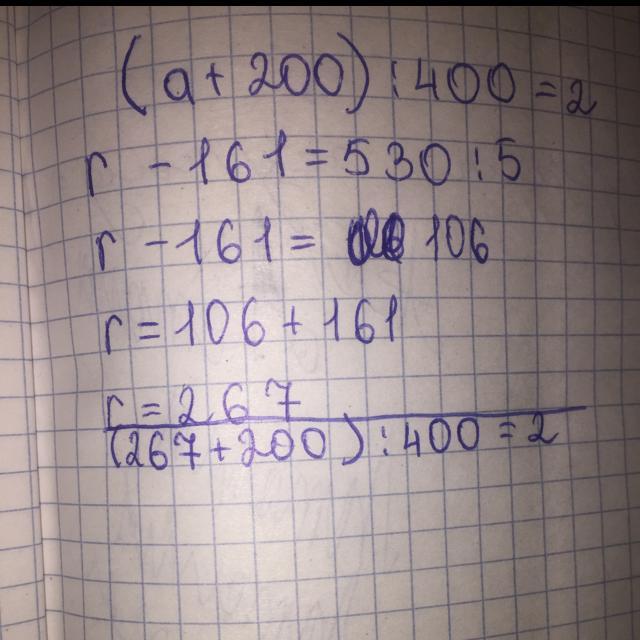 (a + 200) : 400 = 2
r - 161 = 530 : 5
r - 161 = 106
r = 106 + 161
r = 267
(267 + 200) : 400 = 2